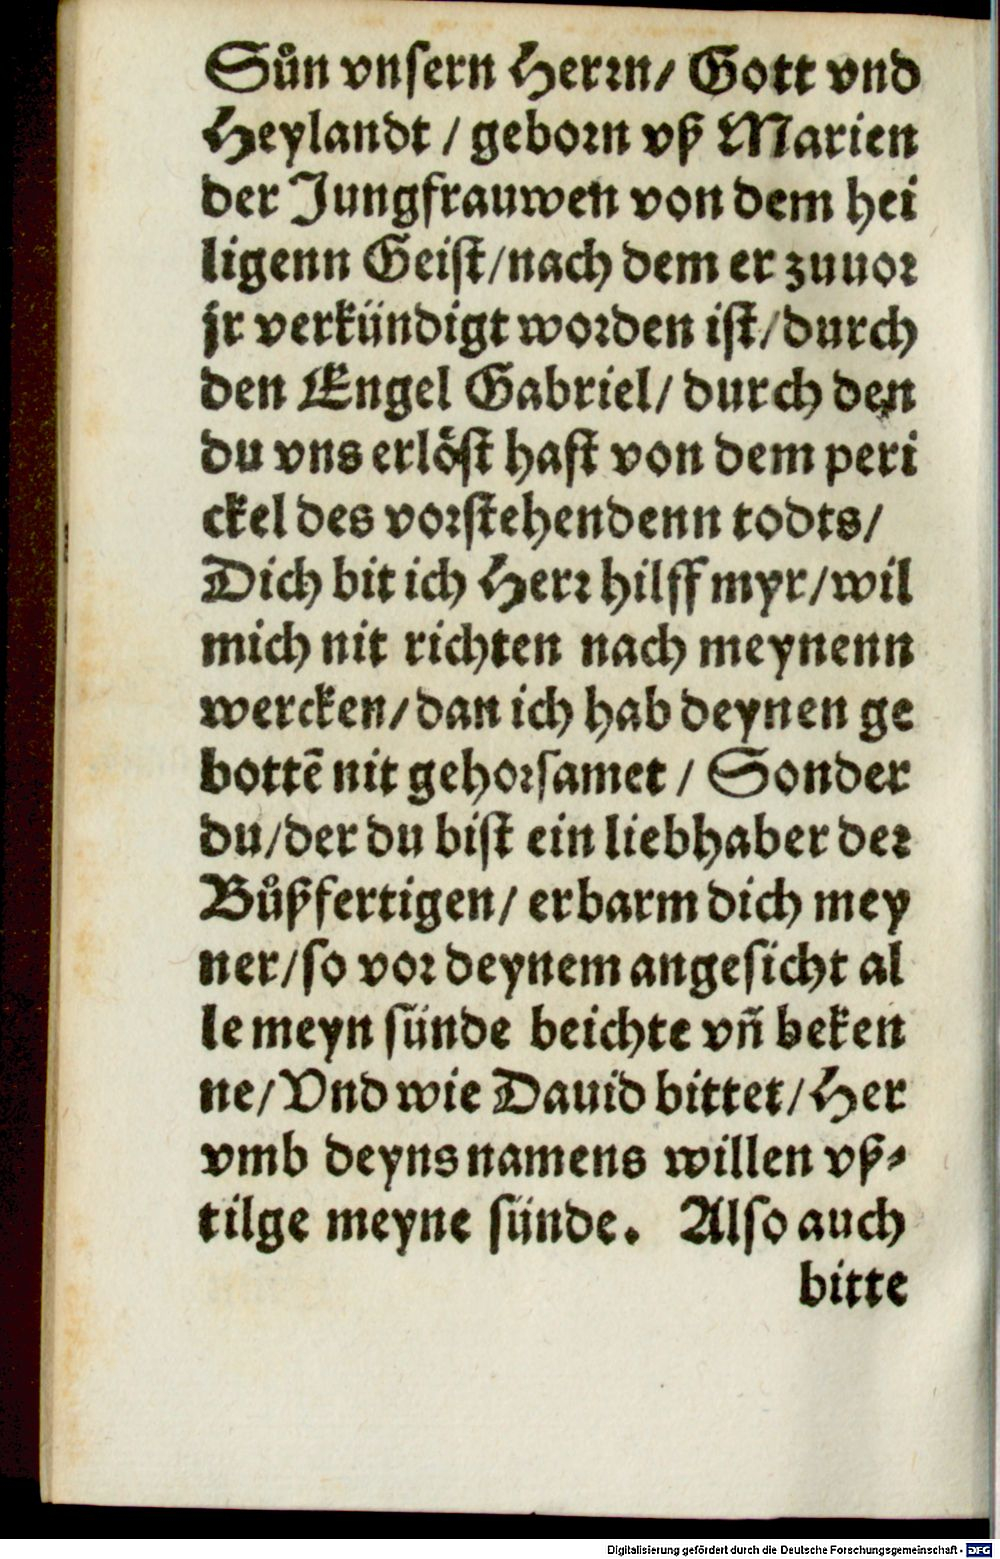 Sůn vnsern Herrn/ Gott vnd
Heylandt / geborn vß Marien
der Jungfrauwen von dem hei
ligenn Geist/nach dem er zuuor
jr verkündigt worden ist/durch
den Engel Gabriel/ durch den
du vns erlöst hast von dem peri
ckel des vorstehendenn todts/
Dich bit ich Herr hilff myr/wil
mich nit richten nach meynenn
wercken/dan ich hab deynen ge
bottē nit gehorsamet / Sonder
du/der du bist ein liebhaber der
Bůßfertigen/ erbarm dich mey
ner/so vor deynem angesicht al
le meyn sünde beichte vñ beken
ne/Vnd wie Dauid bittet/Her
vmb deyns namens willen vß⸗
tilge meyne sünde. Also auch
bitte
Digitalisierung gefördert durch die Deutsche Forschungsgemeinschaft - DFG